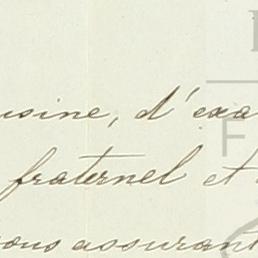 usine, d'exa
fraternel et
vous assurant